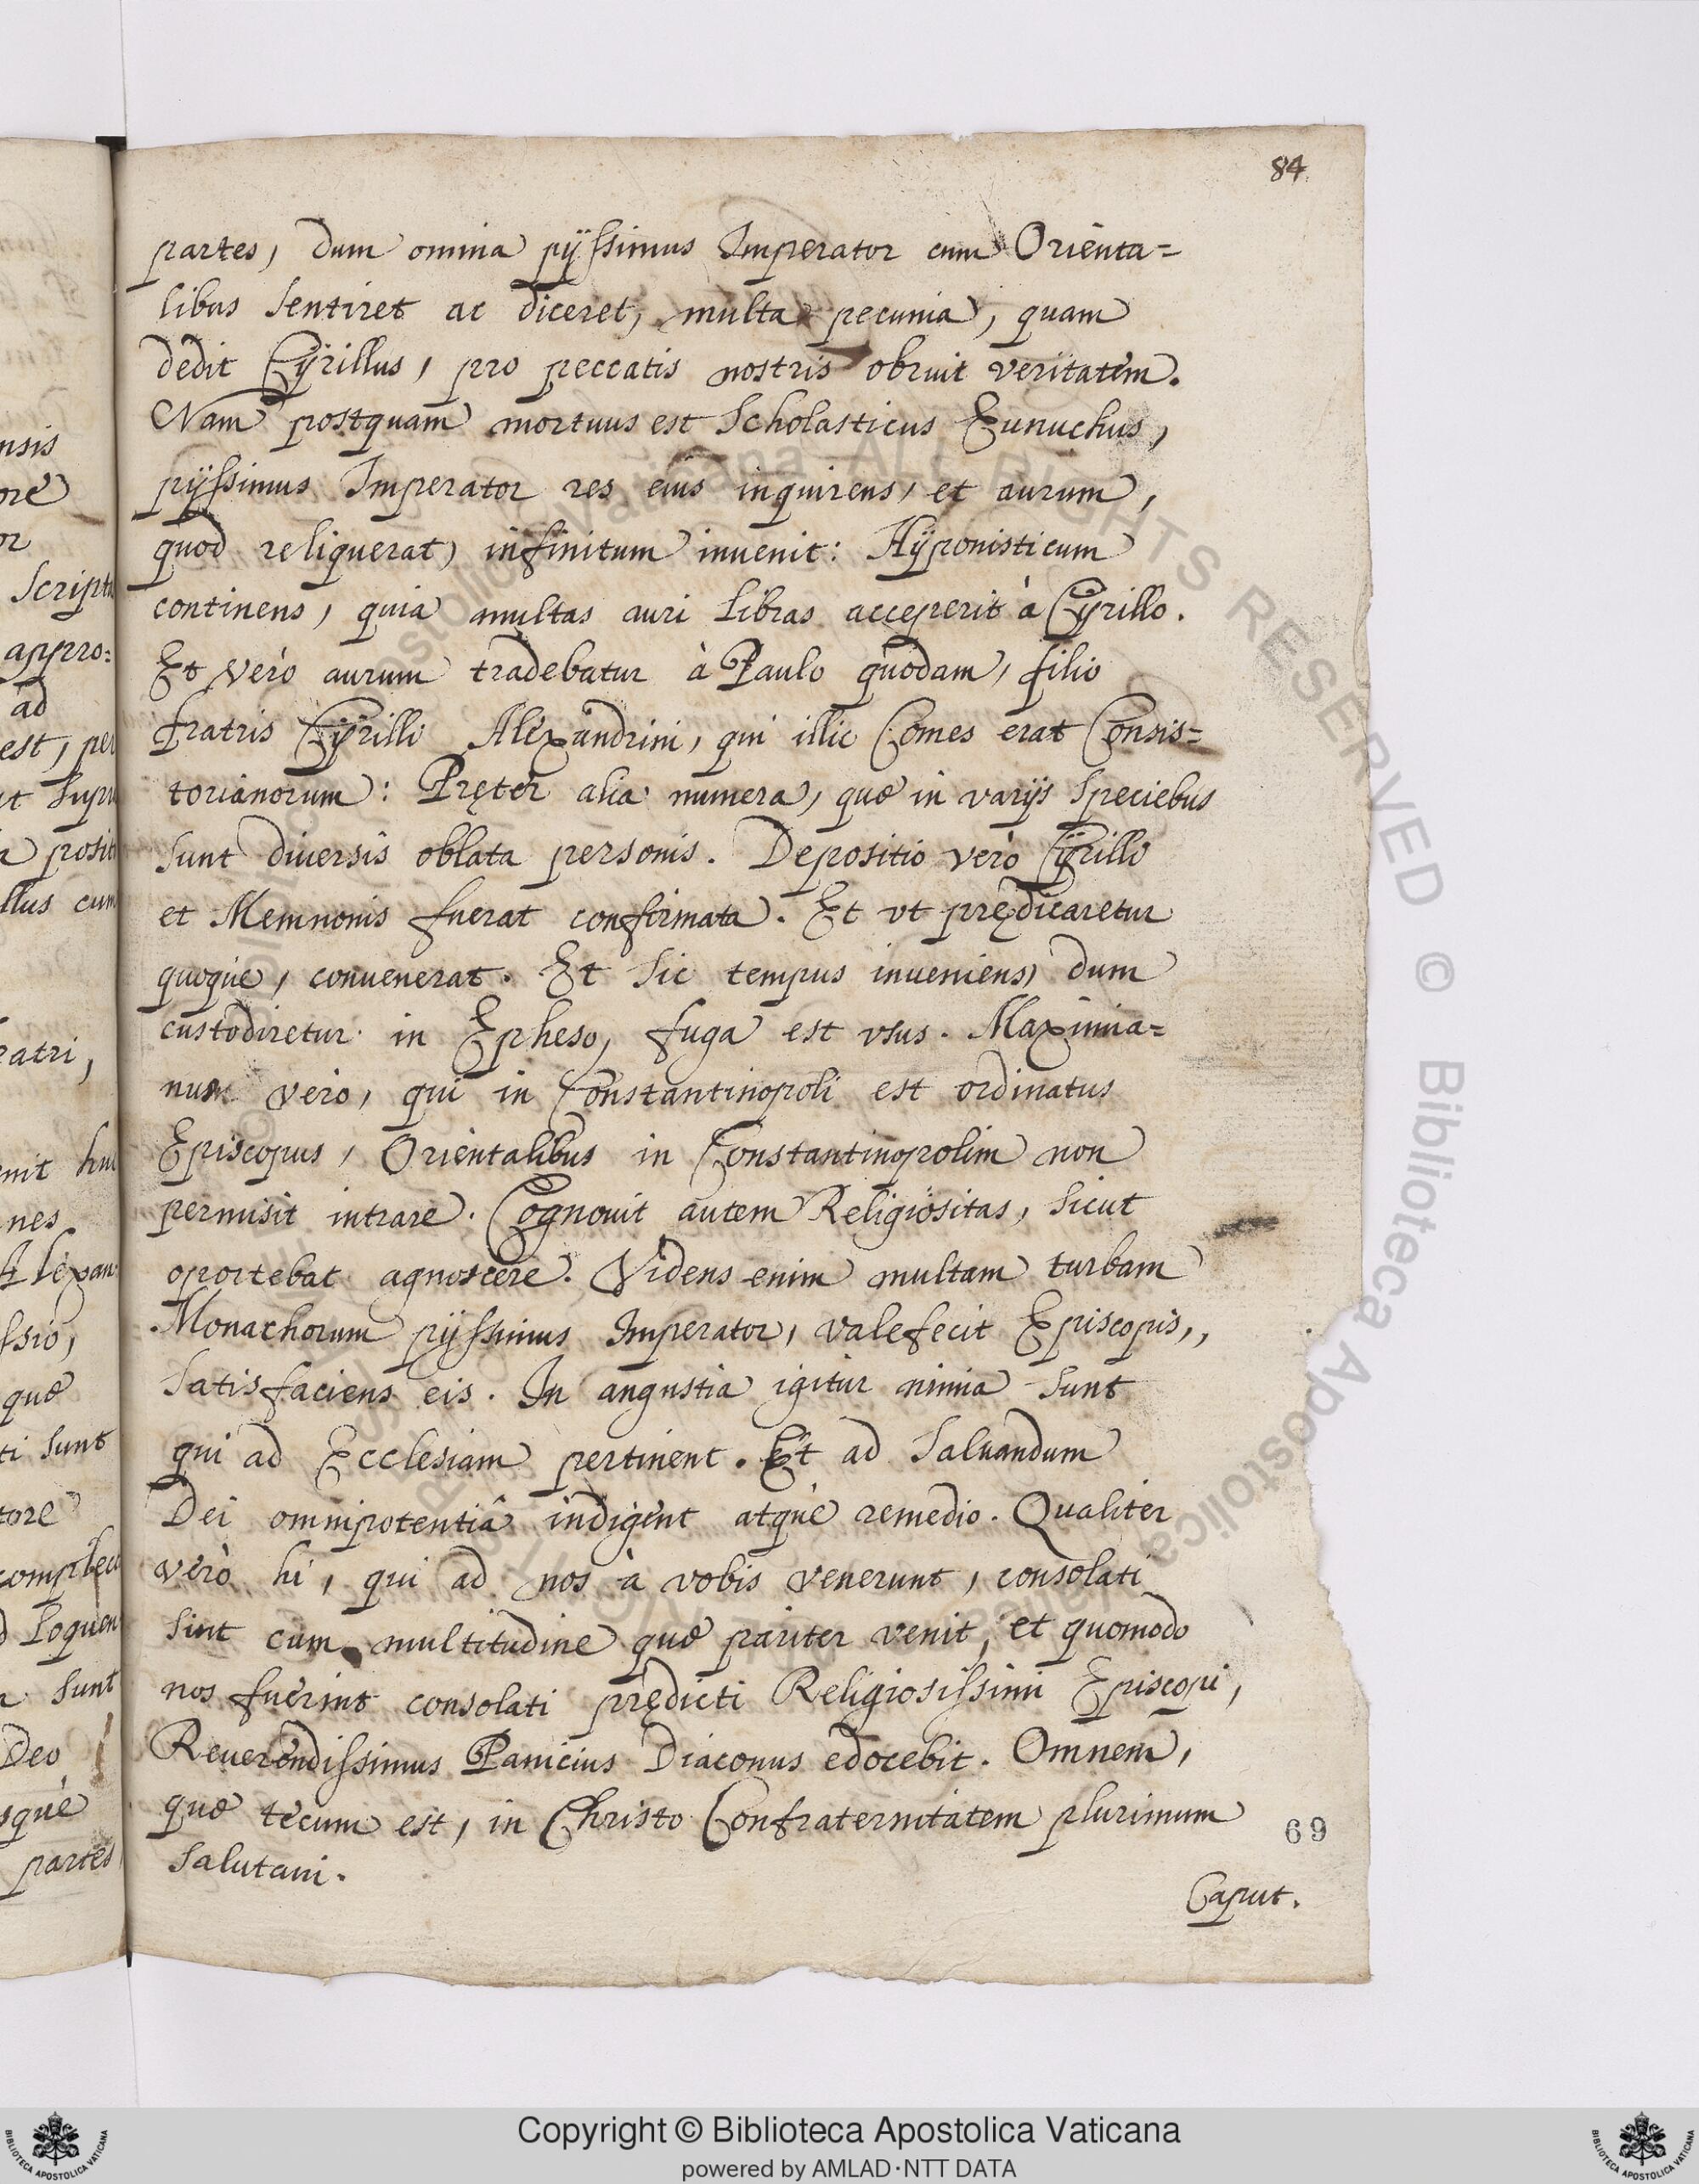 84
partes, dum omnia pÿssimus Imperator cum Orienta=
libus sentiret ac diceret, multa pecunia, quam
dedit Cÿrillus, pro peccatis nostris obruit veritatem.
Nam postquam mortuus est Scholasticus Eunuchus,
pÿssimus Imperator res eius inquirens, et aurum,
quod reliquerat, infinitum inuenit: Hÿponisticum
continens, quia multas auri libras acceperit à Cÿrillo.
Et verò aurum tradebatur à Paulo quodam, filio
fratris Cÿrilli Alexandrini, qui illic Comes erat Consis=
torianorum: Pręter alia munera, quæ in varijs speciebus
sunt diuersis oblata personis. Depositio verò Cÿrilli
et Memnonis fuerat confirmata. Et vt prędicaretur
quoque, conuenerat. Et sic tempus inueniens, dum
custodiretur in Epheso, fuga est vsus. Maximia=
nus verò, qui in Constantinopoli est ordinatus
Episcopus, Orientalibus in Constantinopolim non
permisit intrare. Cognouit autem Religiositas, sicut
oportebat agnoscere. Videns enim multam turbam
Monachorum pijssimus Imperator, valefecit Episcopis,,
satisfaciens eis. In angustia igitur nimia sunt
qui ad Ecclesiam pertinent. Et ad saluandum
Dei omnipotentiâ indigent atque remedio. Qualiter
verò hi, qui ad nos à vobis venerunt, consolati
sint cum multitudine quæ pariter venit, et quomodo
nos fuerint consolati prędicti Religiosissimi Episcopi,
Reuerendissimus Panicius Diaconus edocebit. Omnem,
quæ tecum est, in Christo Confraternitatem plurimum
salutaui.
69
Caput.
nsis
ore
or
Script
appro:
ad
est, per
ratri,
nes.
quæ
ti sunt
tore
sunt
Deo
sque
partes
Copyright © Biblioteca Apostolica Vaticana
powered by AMLAD·NTT DATA